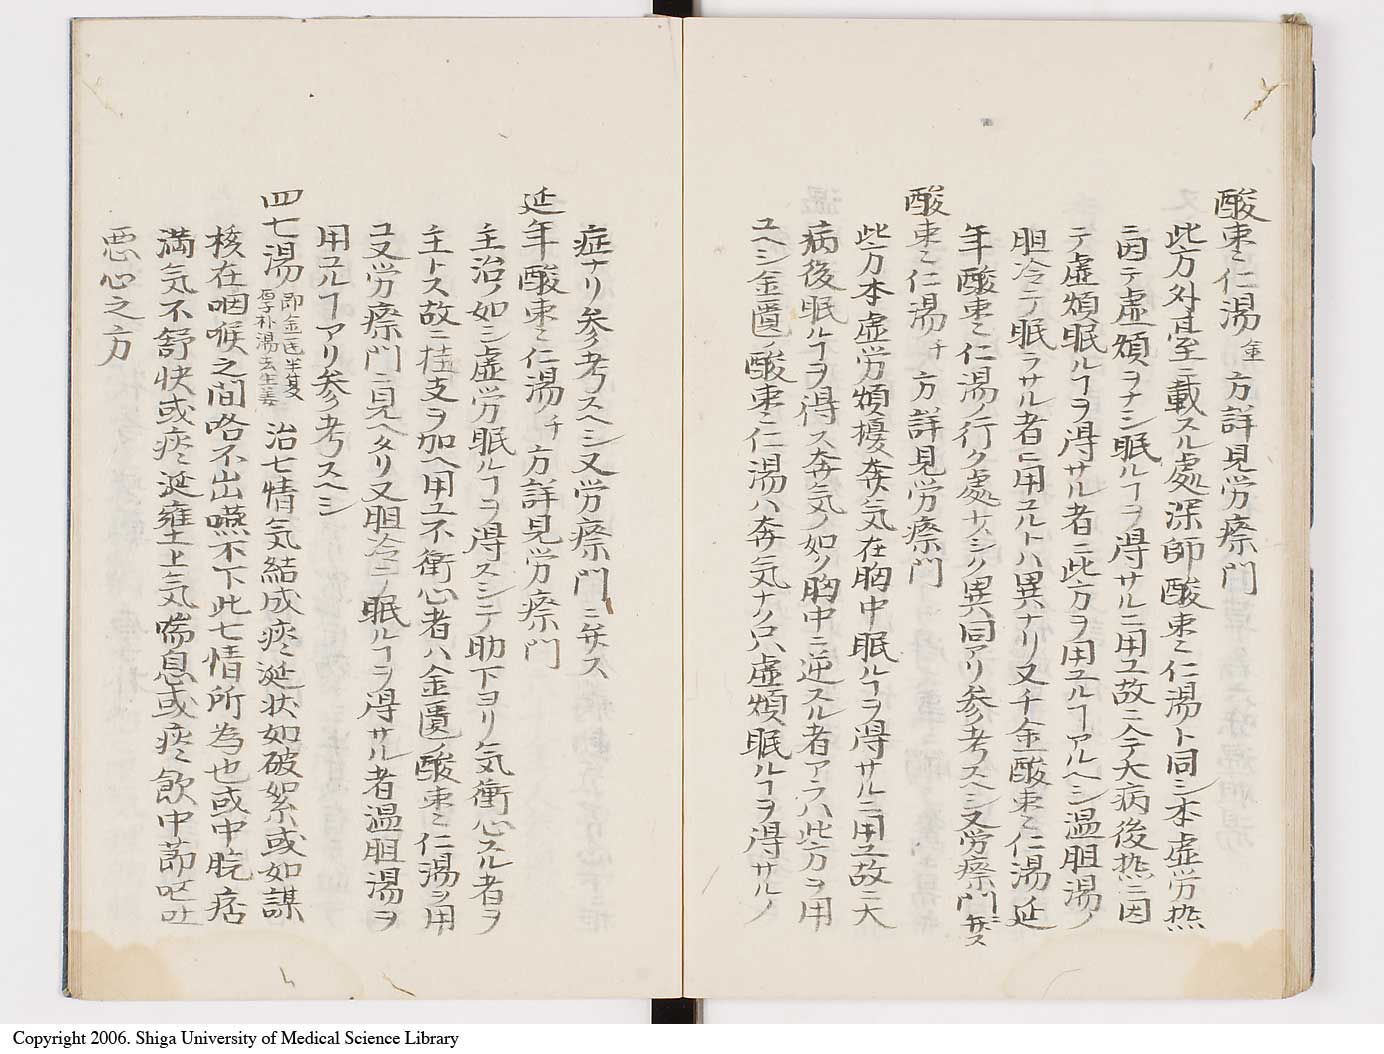 酸棗〻仁湯金 方詳見労瘵門
此方外䑓ニ載スル處深師酸棗〻仁湯ト同シ本虚労热
ニ因テ虚煩ヲナシ眠ルヿヲ得サルニ用ユ故ニ今テ大病後热ニ因
テ虚煩眠ルヿヲ得サル者ニ此方ヲ用ユルヿアルヘシ温胆湯ノ
胆冷ニテ眠ラサル者ニ用ユルトハ異ナリ又千金酸棗〻仁湯延
年酸棗〻仁湯ノ行ク處ナスシク異同アリ参考スヘシ又労瘵門ニ弁ス
酸棗〻仁湯千 方詳見労瘵門
此方本虚労煩擾奔気在胸中眠ルヿヲ得サルニ用ユ故ニ大
病後眠ルヿヲ得ス奔気ノ如ク胸中ニ逆スル者アラハ此方ヲ用
ユヘシ金匱ノ酸棗〻仁湯ハ奔気ナク只虚煩眠ルヿヲ得サルノ
症ナリ参考スヘシ又労瘵門ニ弁ス
延年酸棗〻仁湯千 方詳見労瘵門
主治ノ如シ虚労眠ルヿヲ得スシテ助下ヨリ気衝心スル者ヲ
主トス故ニ桂支ヲ加ヘ用ユ不衝心者ハ金匱ノ酸棗〻仁湯ヲ用
ユ又労瘵門ニ見ヘタリ又胆冷ニノ眠ルヿヲ得サル者温胆湯ヲ
用ユルヿアリ参考スヘシ
四七湯即金匱半夏厚朴湯去生姜 治七情気結成痰〻涎状如破絮或如謀
核在咽喉之間咯不出嚥不下此七情所為也或中脘痞
満気不舒快或痰〻涎壅上気喘息或痰〻飲中節呕吐
悪心之方
Copyright 2006. Shiga University of Medical Science Library